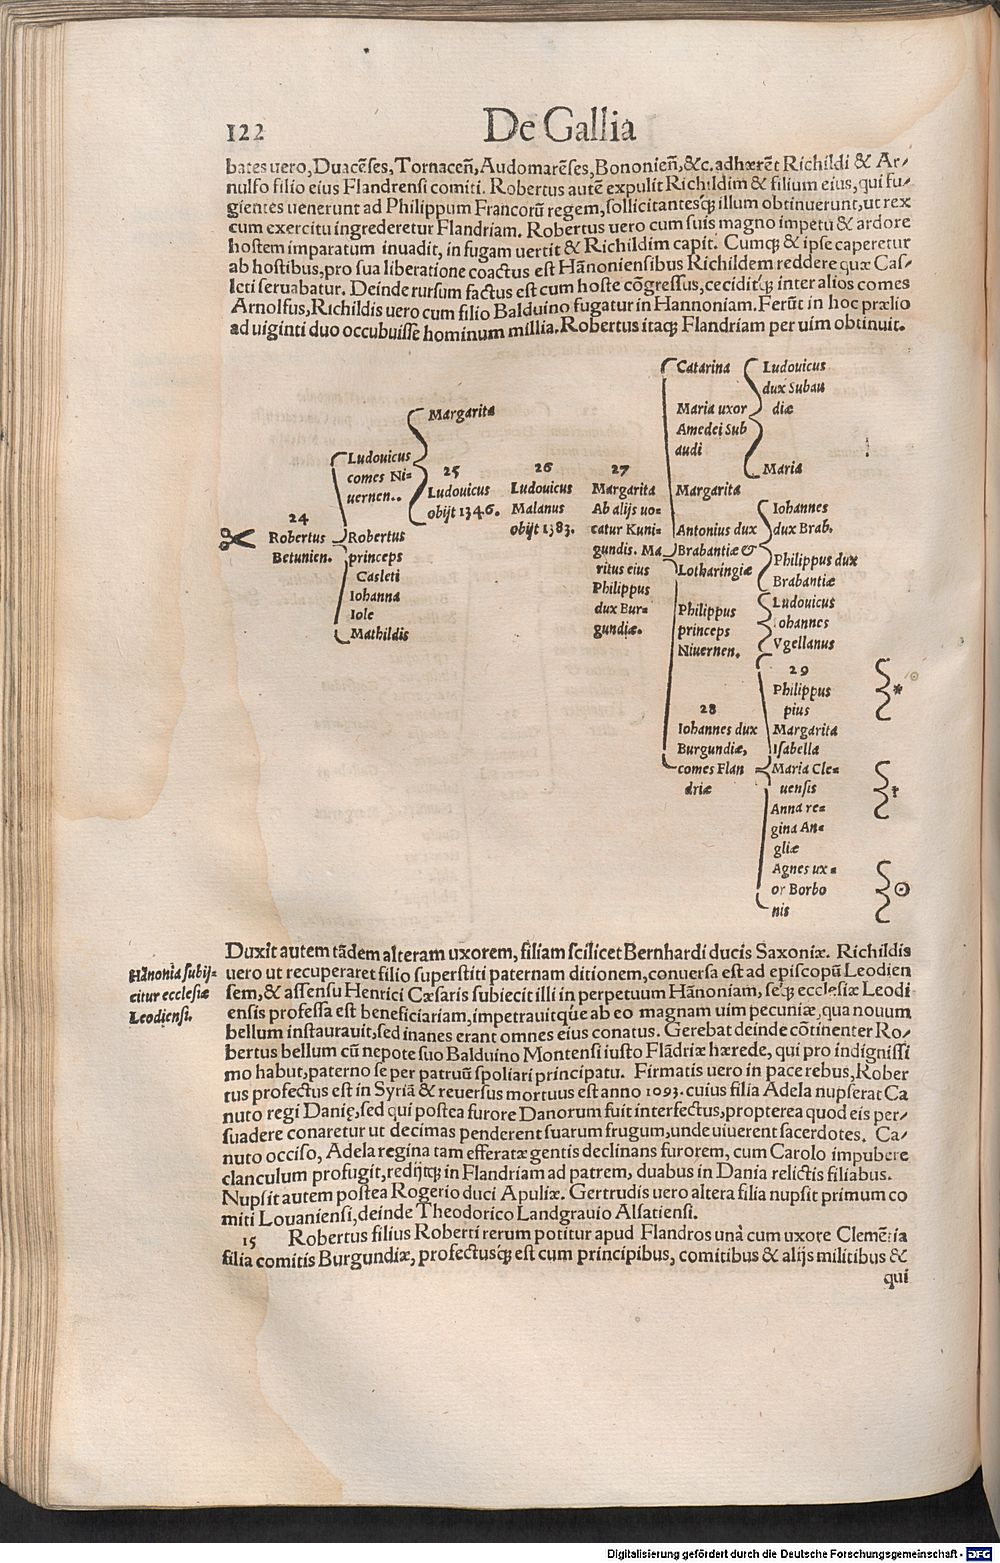 122
De Gallia
bates uero, Duacēses, Tornaceñ, Audomarēses, Bononieñ, &c. adhærēt Richildi & Ar-
nulfo filio eius Flandrensi comiti. Robertus autē expulit Richildim & filium eius, qui fu-
gientes uenerunt ad Philippum Francorū regem, sollicitantesq́; illum obtinuerunt, ut rex
cum exercitu ingrederetur Flandriam. Robertus uero cum suis magno impetu & ardore
hostem imparatum inuadit, in fugam uertit & Richildim capit. Cumq; & ipse caperetur
ab hostibus, pro sua liberatione coactus est Hãnoniensibus Richildem reddere quæ Cas-
leti seruabatur. Deinde rursum factus est cum hoste cõgressus, ceciditq́; inter alios comes
Arnolfus, Richildis uero cum filio Balduino fugatur in Hannoniam. Ferūt in hoc prælio
ad uiginti duo occubuisse hominum millia. Robertus itaq; Flandriam per uim obtinuit.
24
Robertus
Betunien.
Ludouicus
comes Ni=
uernen..
Robertus
princeps
Casleti
Iohanna
Iole
Mathildis
Margarita
25
Ludouicus
obijt 1346.
26
Ludouicus
Malanus
obijt 1383.
27
Margarita
Ab alijs uo=
catur Kuni=
gundis. Ma
ritus eius
Philippus
dux Bur=
gundiæ.
Catarina
Maria uxor
Amedei Sub
audi
Margarita
Antonius dux
Brabantiæ &
Lotharingiæ
Philippus
princeps
Niuernen.
28
Iohannes dux
Burgundiæ,
comes Flan
driæ
Ludouicus
dux Subau
diæ
Maria
Iohannes
dux Brab.
Philippus dux
Brabantiæ
Ludouicus
Iohannes
Vgellanus
29
Philippus
pius
Margarita
Isabella
Maria Cle=
uensis
Anna re=
gina An=
gliæ
Agnes ux=
or Borbo
nis
Duxit autem tãdem alteram uxorem, filiam scilicet Bernhardi ducis Saxoniæ. Richildis
Hãnonia subij=
citur ecclesiæ
Leodiensi.
uero ut recuperaret filio superstiti paternam ditionem, conuersa est ad episcopū Leodien
sem, & assensu Henrici Cæsaris subiecit illi in perpetuum Hãnoniam, seq́; ecclesiæ Leodi
ensis professa est beneficiariam, impetrauitque ab eo magnam uim pecuniæ, qua nouum
bellum instaurauit, sed inanes erant omnes eius conatus. Gerebat deinde cõtinenter Ro-
bertus bellum cū nepote suo Balduino Montensi iusto Flãdriæ hærede, qui pro indignissi
mo habut, paterno se per patruū spoliari principatu. Firmatis uero in pace rebus, Rober
tus profectus est in Syriã & reuersus mortuus est anno 1093. cuius filia Adela nupserat Ca
nuto regi Danię, sed qui postea furore Danorum fuit interfectus, propterea quod eis per-
suadere conaretur ut decimas penderent suarum frugum, unde uiuerent sacerdotes. Ca-
nuto occiso, Adela regina tam efferatæ gentis declinans furorem, cum Carolo impubere
clanculum profugit, redijtq; in Flandriam ad patrem, duabus in Dania relictis filiabus.
Nupsit autem postea Rogerio duci Apuliæ. Gertrudis uero altera filia nupsit primum co
miti Louaniensi, deinde Theodorico Landgrauio Alsatiensi.
15 Robertus filius Roberti rerum potitur apud Flandros unà cum uxore Clemētia
filia comitis Burgundiæ, profectusq́; est cum principibus, comitibus & alijs militibus &
qui
Digitalisierung gefördert durch die Deutsche Forschungsgemeinschaft - DFG